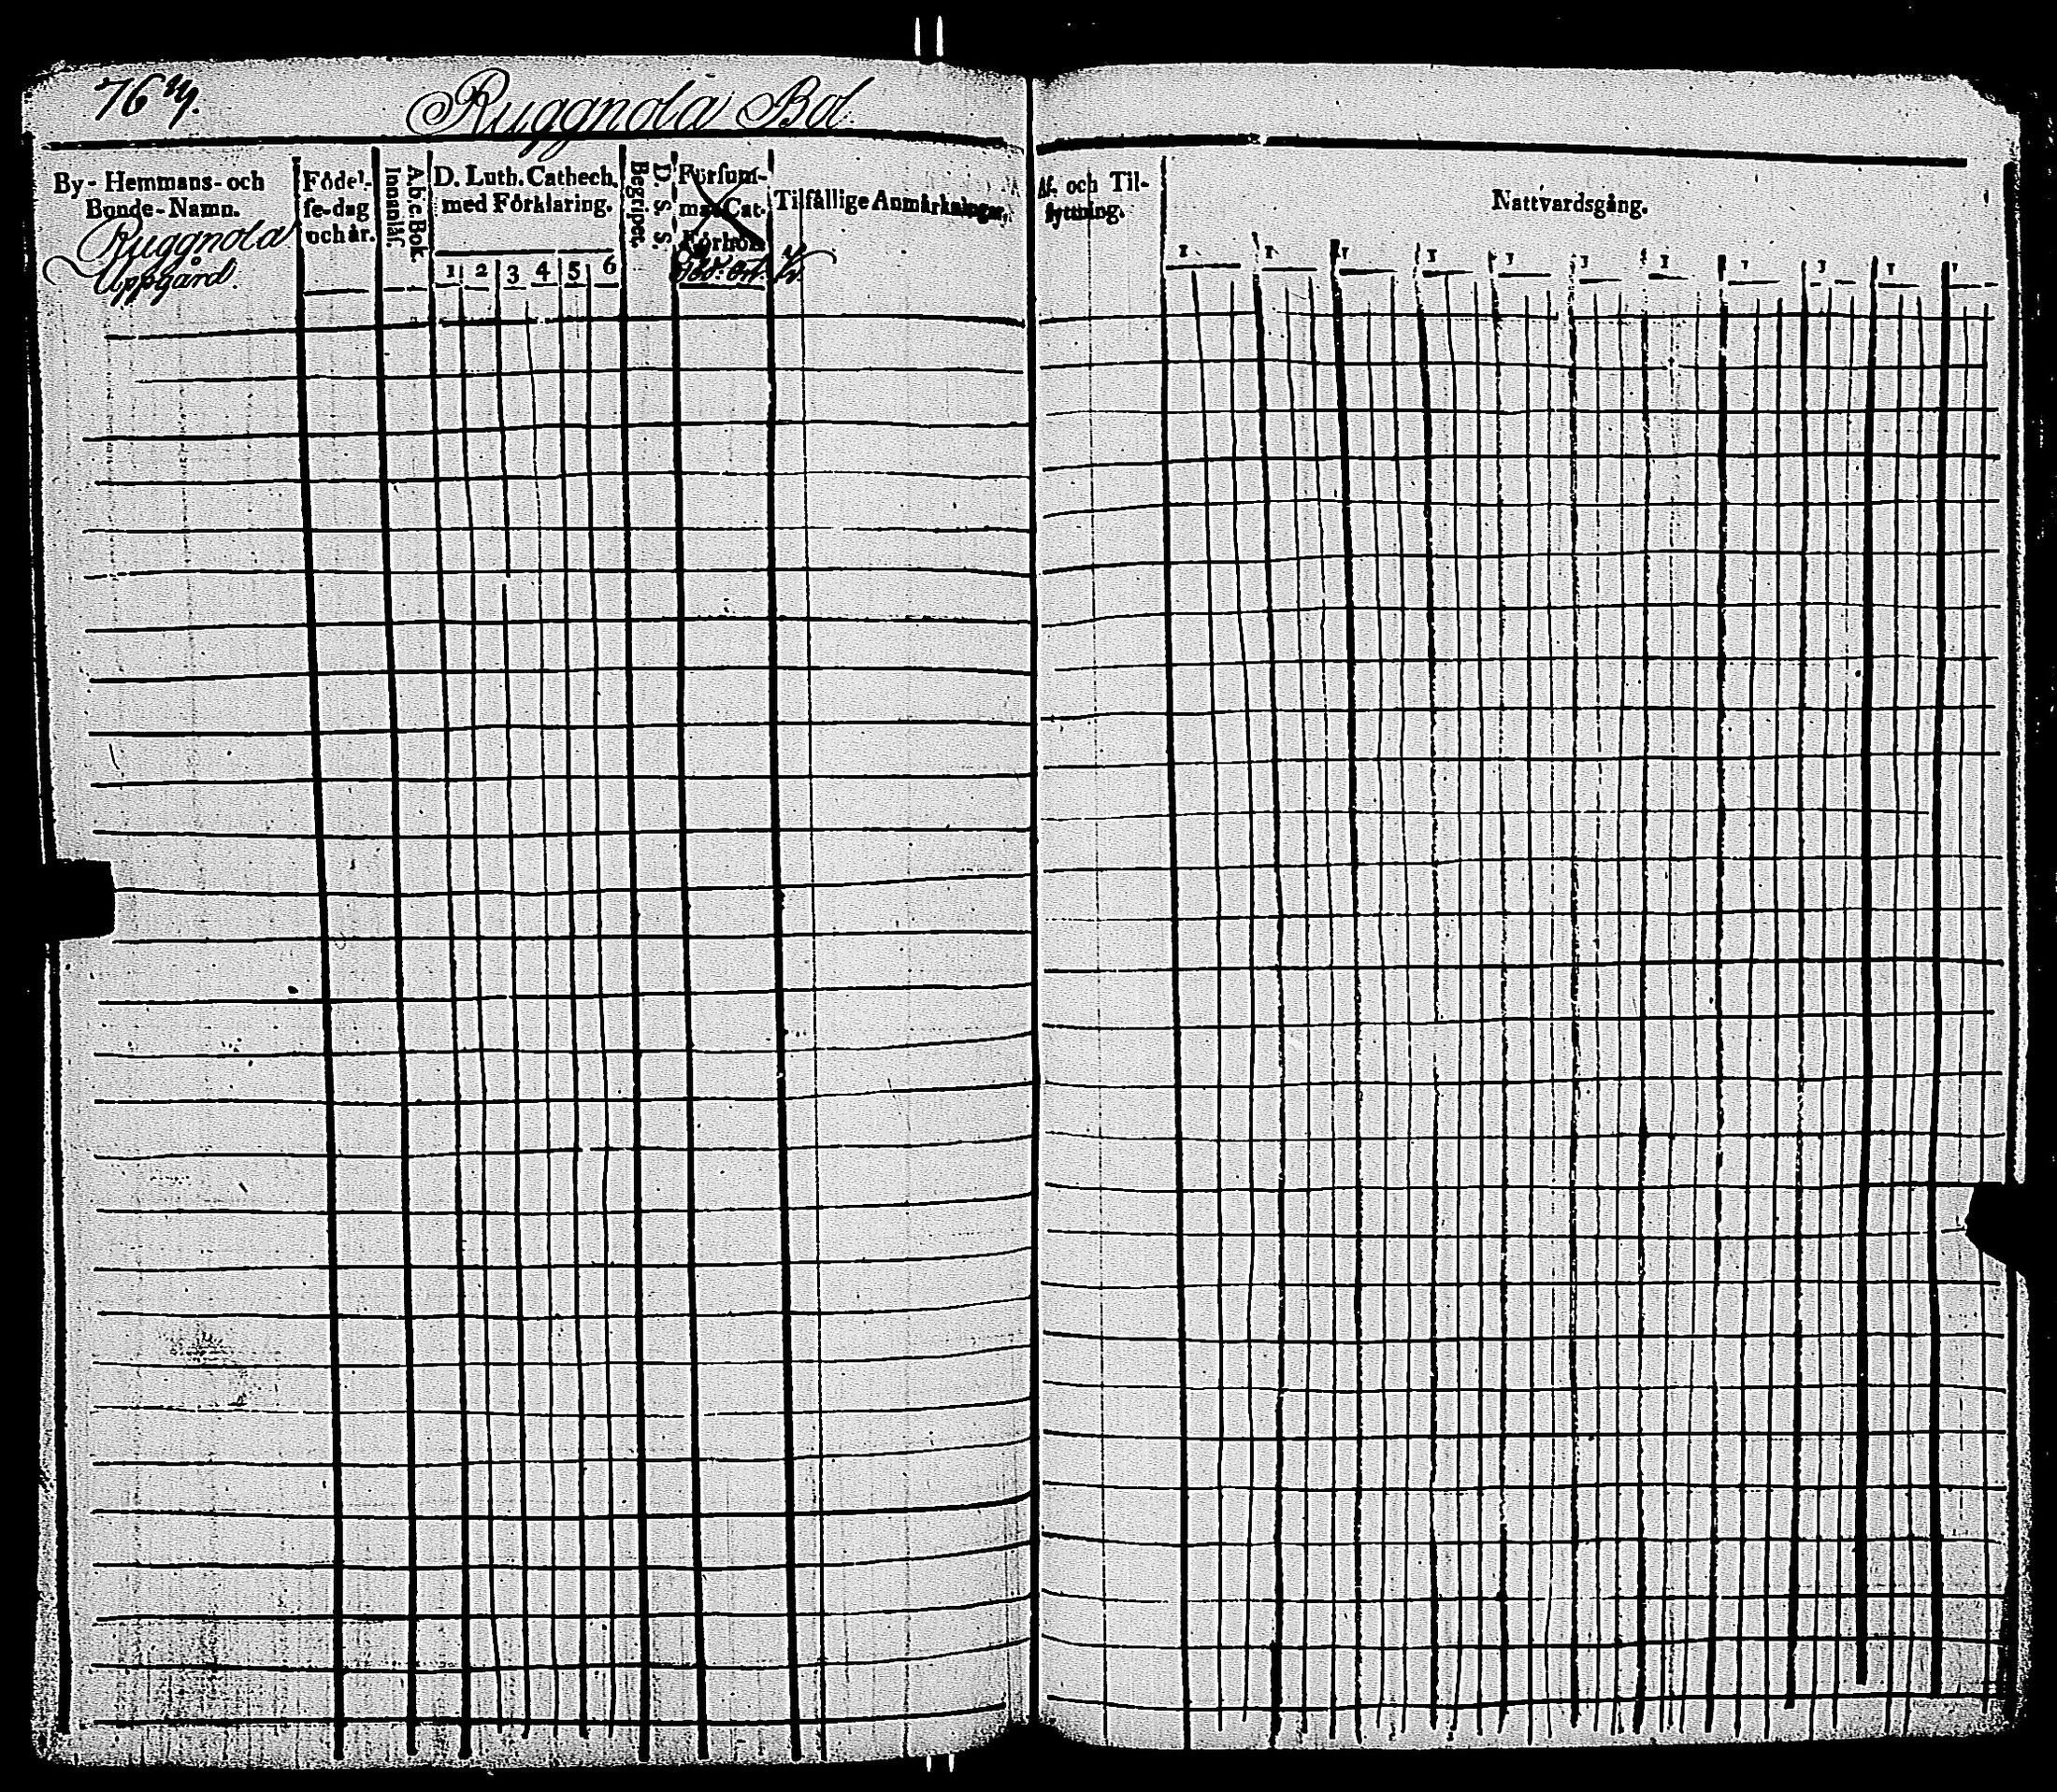 Ruggnola Bol.
By- Hemmans- och
Bonde-Namn.
Ruggnola
Uppgård.
Födel-
se-dag
och år.
A.b.c. Bok.
Innanläs.
D. Luth. Cathech.
med Förklaring.
1 2 3 4 5 6
D. S. S.
Begriper.
Försum-
mat Cat.
Förhör.
Föd. Ort.
Tilfällige Anmärkningar.
Af- och Til-
flyttning.
Nattvardsgång.